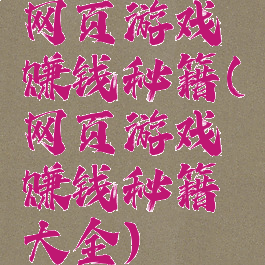 网页游戏
赚钱秘籍(
网页游戏
赚钱秘籍
大全)